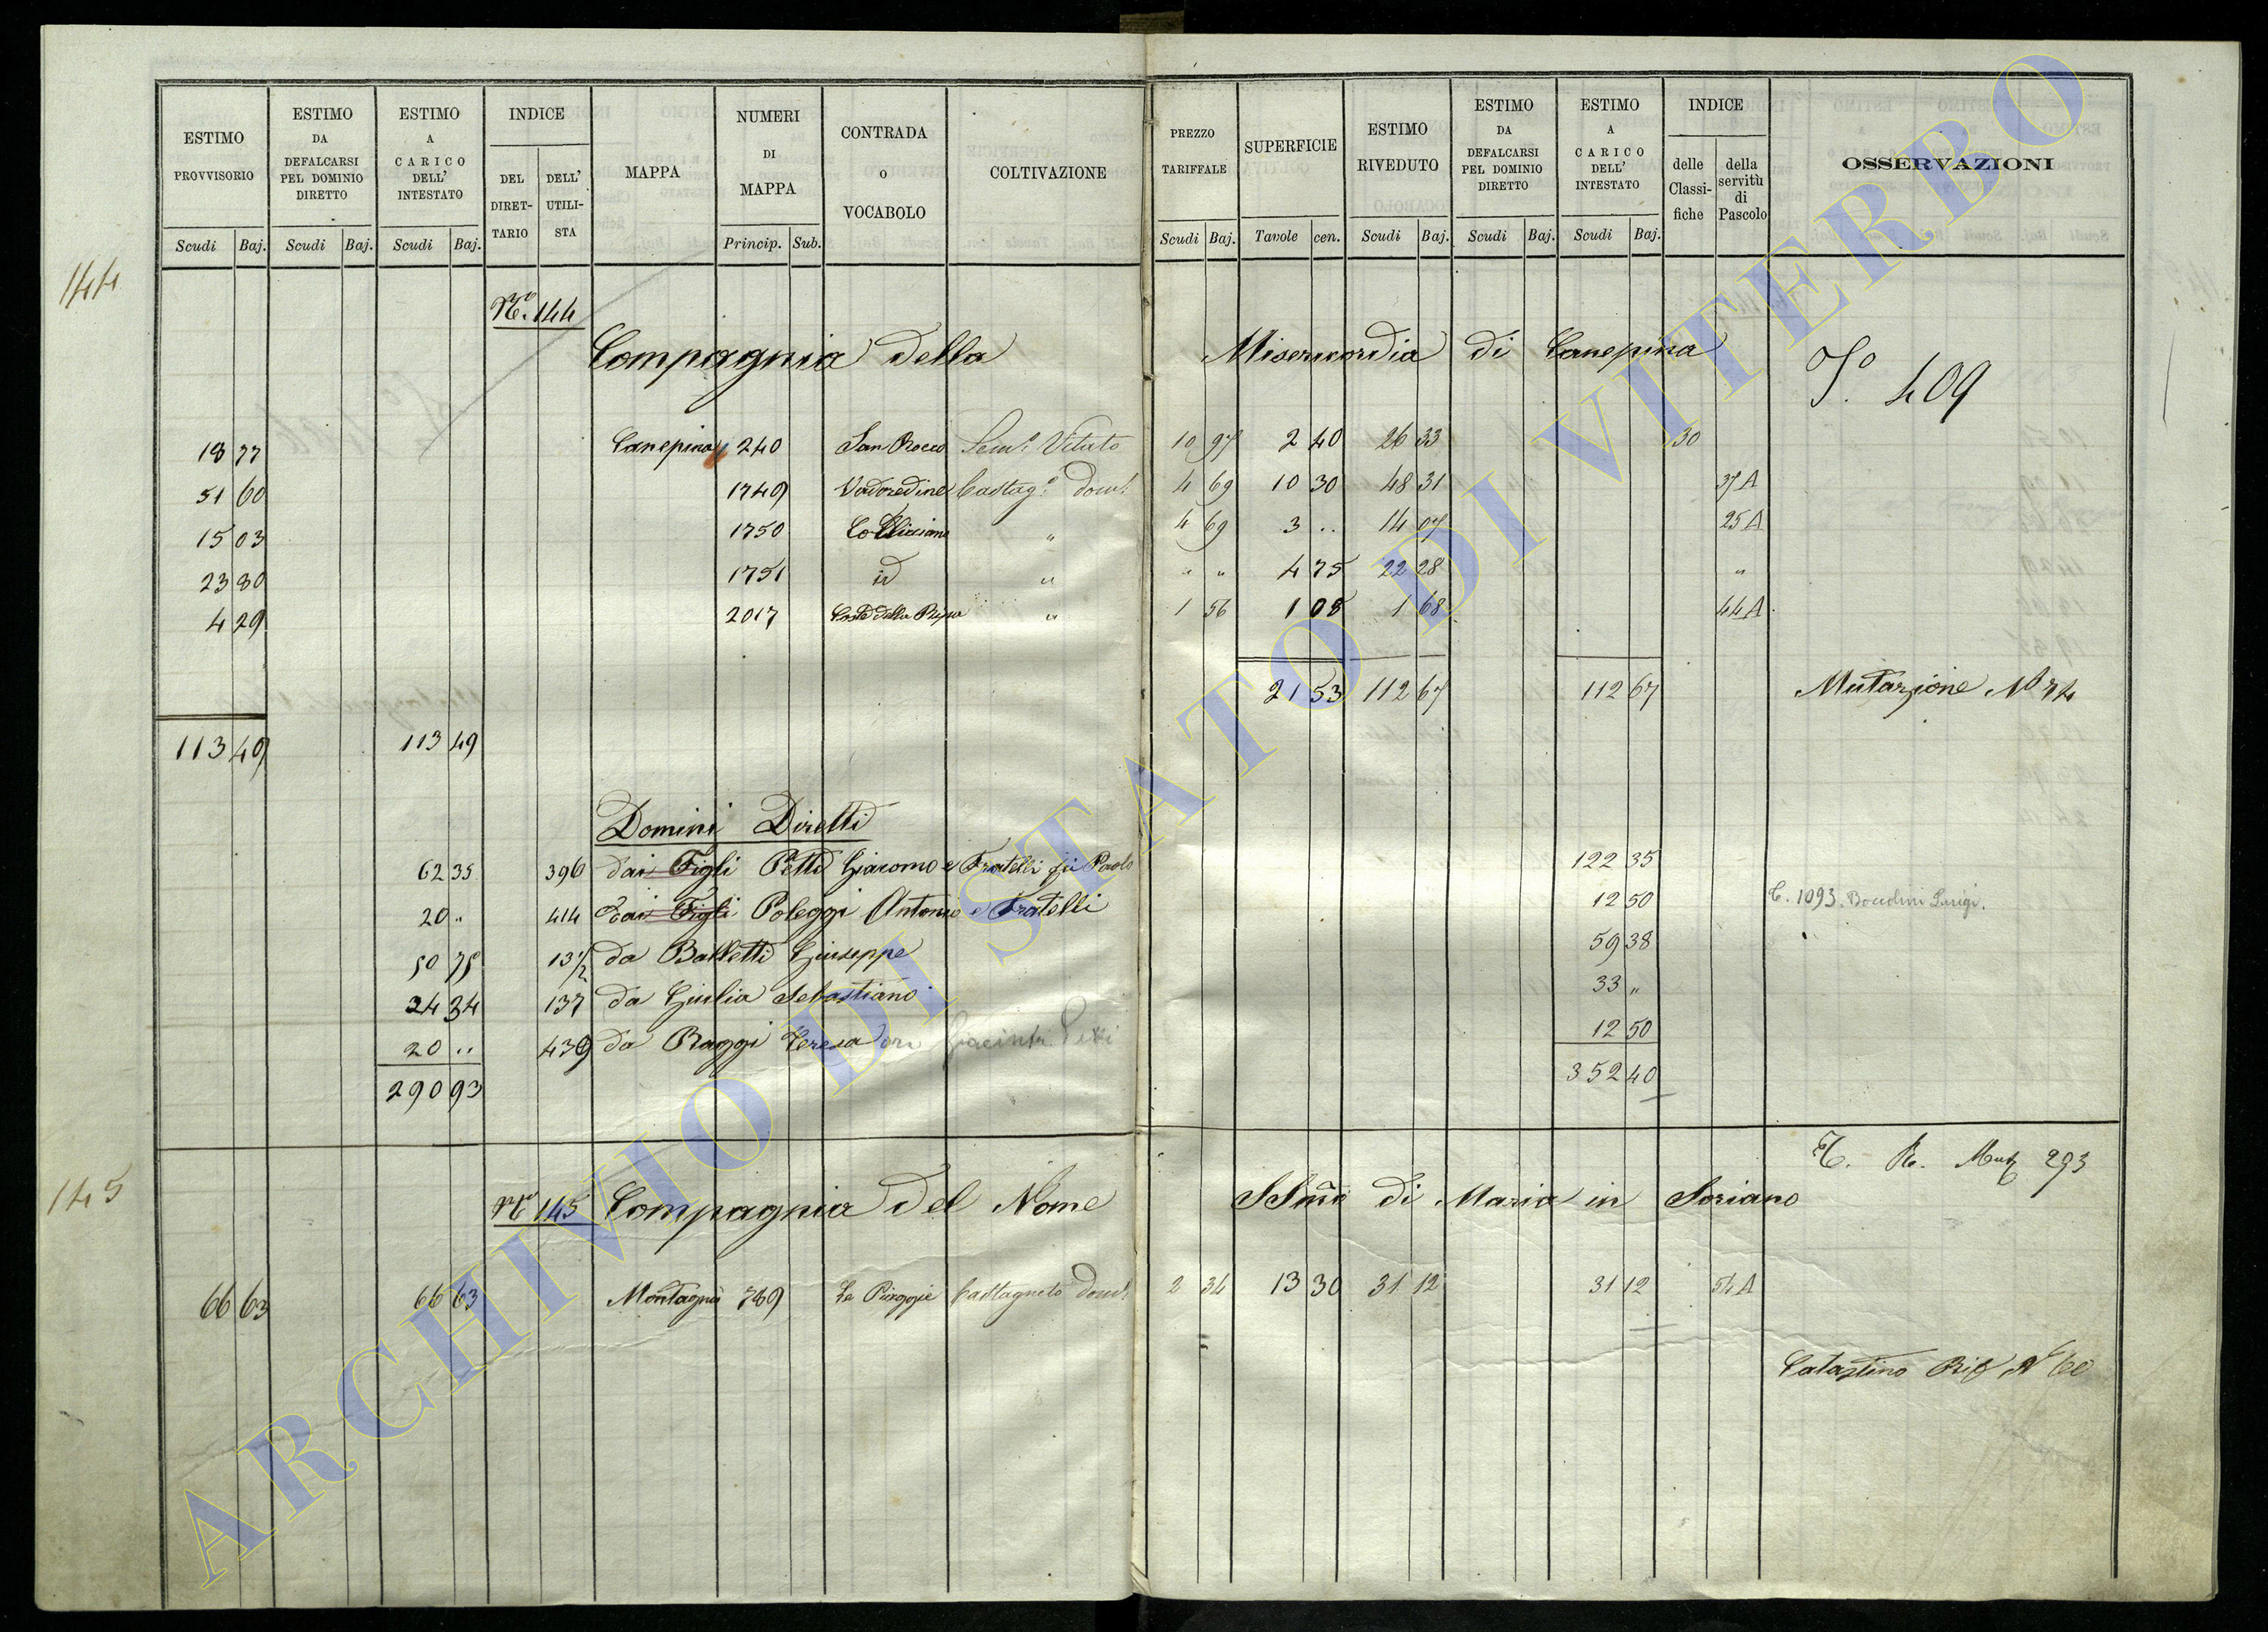 ESTIMO PROVVISORIO Scudi Baj.
ESTIMO DA DEFALCARSI PEL DOMINIO DIRETTO Scudi Baj.
ESTIMO A CARICO DELL' INTESTATO Scudi Baj.
INDICE DEL DIRETTARIO DELL' UTILISTA
MAPPA
NUMERI DI MAPPA Princip. Sub.
CONTRADA o VOCABOLO
COLTIVAZIONE
PREZZO TARIFFALE Scudi Baj.
SUPERFICIE Tavole cen.
ESTIMO RIVEDUTO Scudi Baj.
ESTIMO DA DEFALCARSI PEL DOMINIO DIRETTO Scudi Baj.
ESTIMO A CARICO DELL' INTESTATO Scudi Baj.
INDICE delle Classifiche della servitù di Pascolo
OSSERVAZIONI
144
No. 144
Compagnia della Misericordia di Canepina
To. 409
18 77 Canepina 240 San Rocco Sem.o Vitato 10 97 2 40 26 33 30
51 60 1749 Vadoredine Castag.o Dom. 4 69 10 30 48 31 37 A
15 03 1750 " 4 69 3 .. 14 07 25 A
23 80 1751 id " " " 4 75 22 28 "
4 29 2017 Coste della " 1 56 1 08 1 68 44 A
21 53 112 67 112 67 Mutazione No 74
113 49 113 49
Domini Diretti
62 35 396 dai Figli Petti Giacomo e Fratelli fù Paolo 122 35
20 .. 414 Dai Figli Poleggi Antonio e Fratelli 12 50 C. 1093. Boccolini Luigi.
50 75 13 1/2 da Balletti Giuseppe 59 38
24 34 137 da Giulia Sebastiano 33 "
20 .. 439 da Raggi Teresa ora Giacinto 12 50
290 93 352 40
145
293
No 145 Compagnia del Nome SSmo di Maria in Soriano
66 63 66 63 Montagna 789 Le Piaggie Castagneto Dom. 2 34 13 30 31 12 31 12 54 A
Catastino
ARCHIVIO DI STATO DI VITERBO